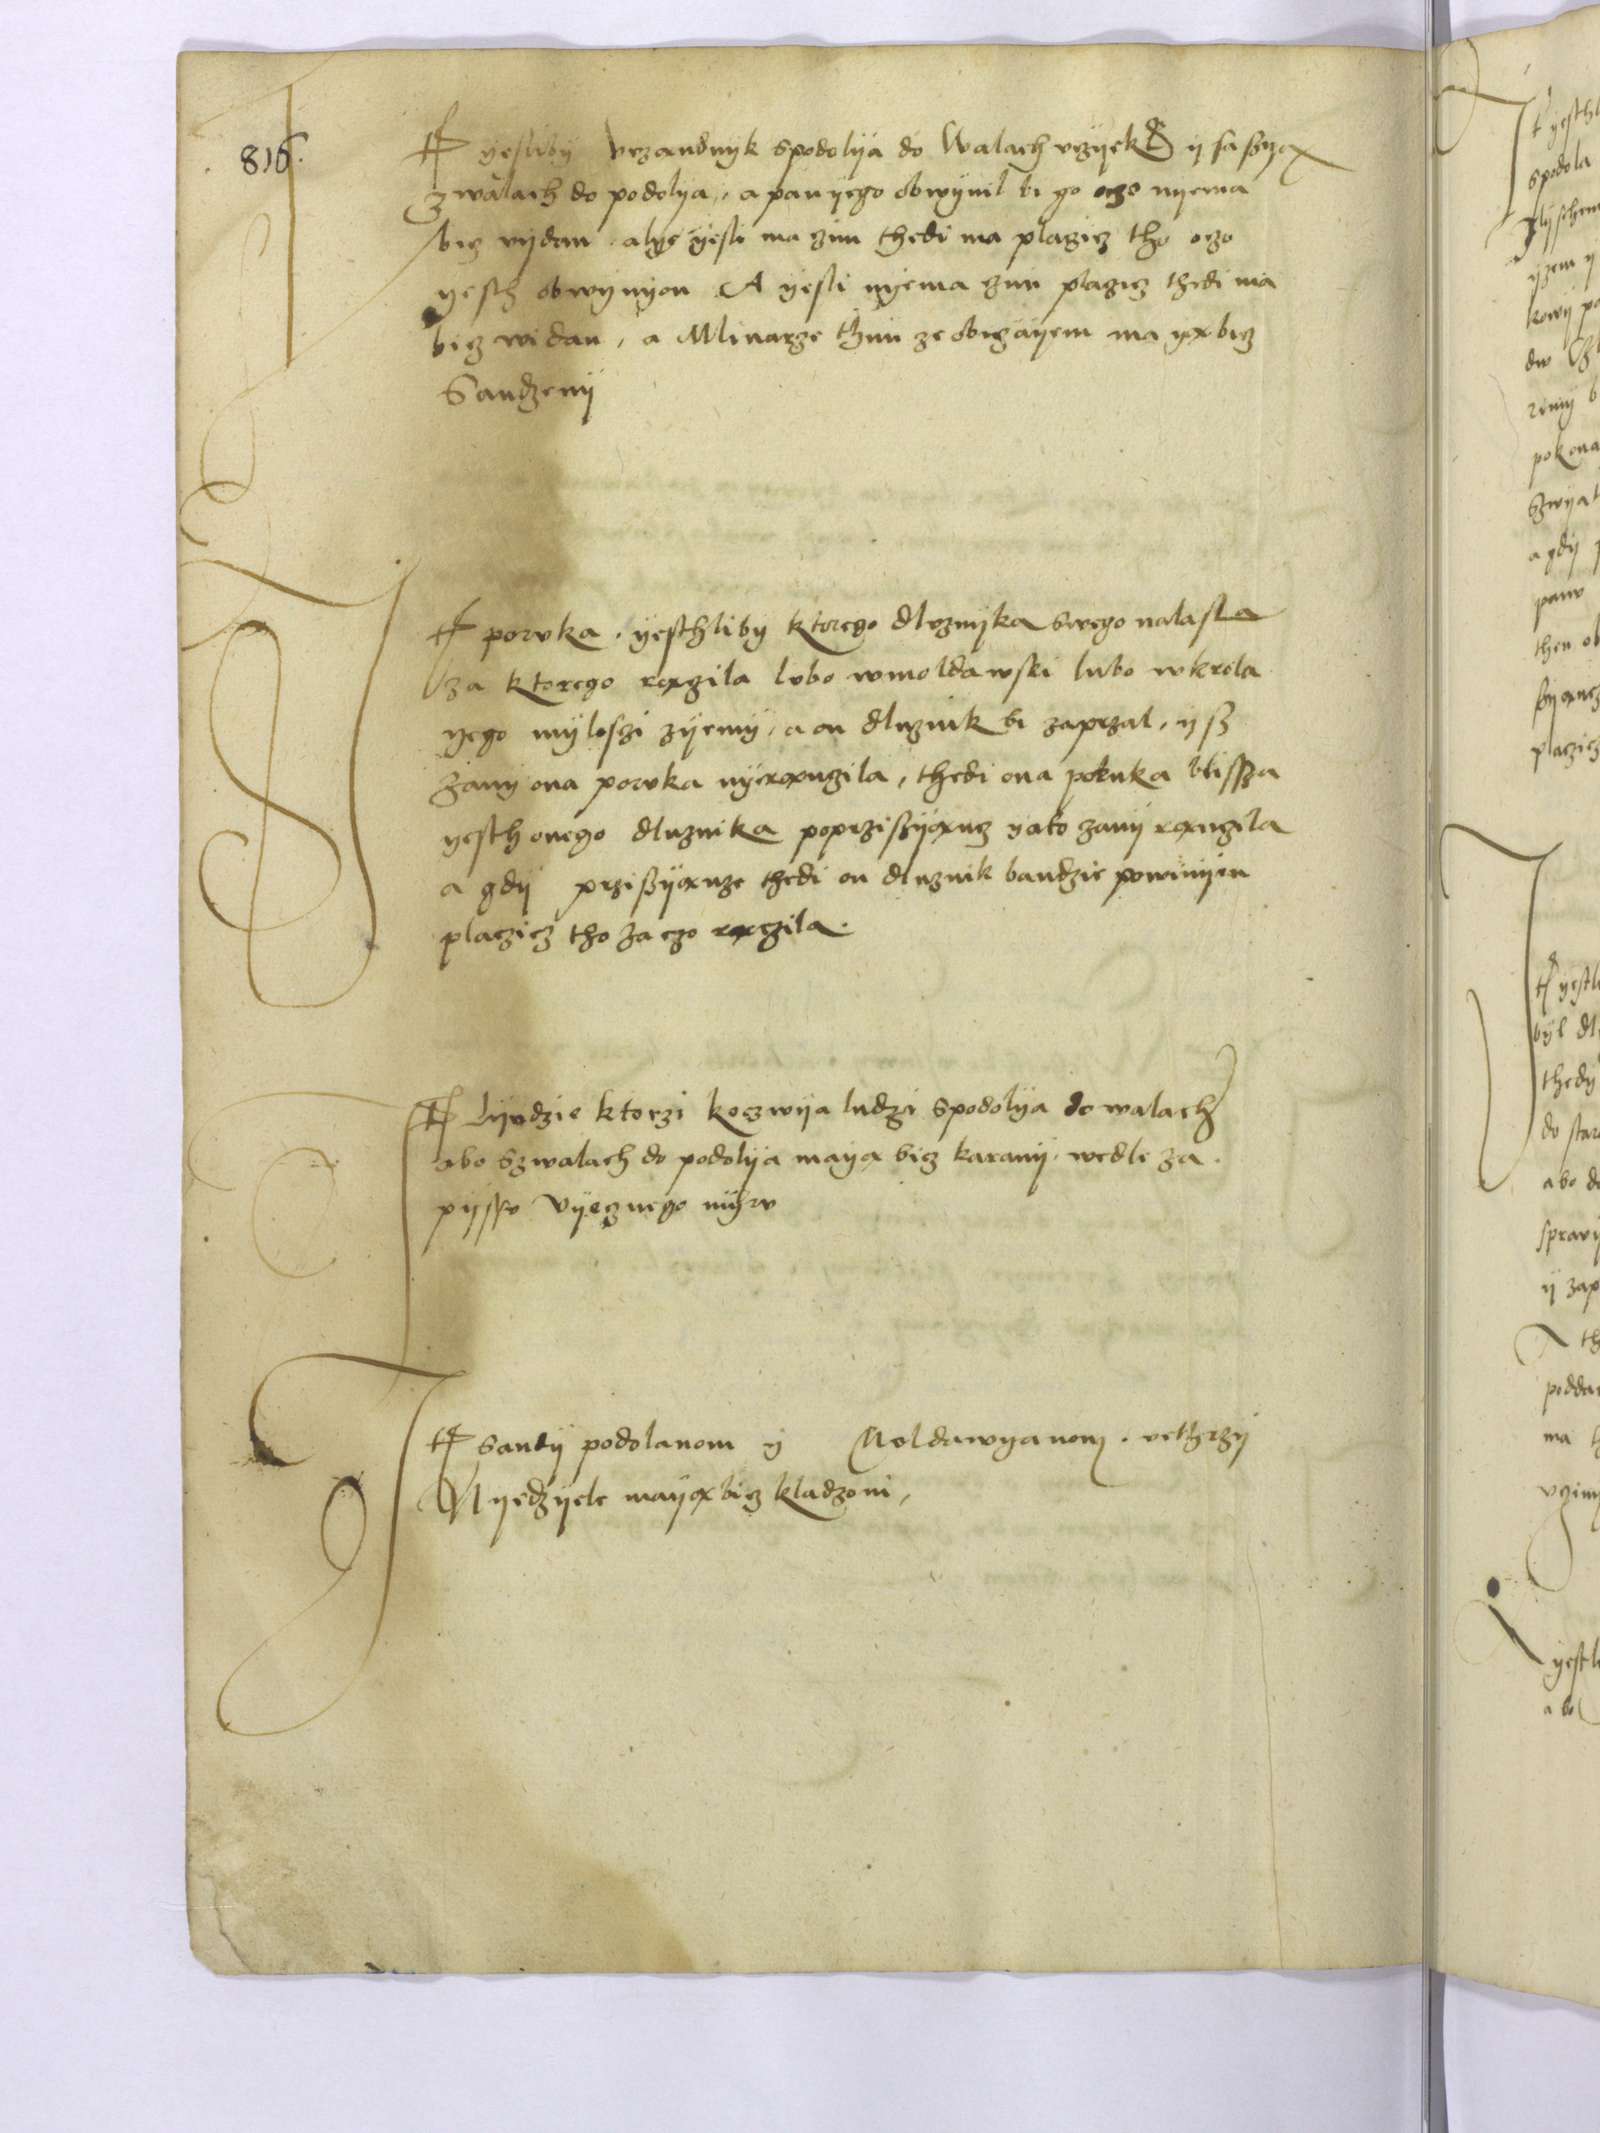 816.
It yesliby vrzandnyk spodolya do Walach vczyekl y sa szya
z walach do podolya, a pan yego obwynil bi go oczo nyema
bicz wydan, alye yesli ma czim thedi ma placzicz tho oczo
yesth obwynyon A yesli nyema czim placzicz thedi ma
bicz widan, a Mlinarze thim ze obiczayem ma yx bicz
Sandzeny
It poruka, yesthliby ktorego dluznyka swego nalasla
za ktorego raxczila lubo wmoldawski lubo wkrola
yego myloszi zyemy, a on dluznik bi zaprzal, ysz
zany ona poruka nyeraxnczila, thedi ona poruka blissza
yesth onego dluznika poprzisszyaxncz yako zany raxnczila
a gdy przisszyaxnze thedi on dluznik bandzie powinyen
placzicz tho za czo raxczila.
It Lyudzie ktorzi koczwya ludzi spodolya do walach
abo Szwalach do podolya maya bicz karany, wedle za
pyssu vyecznego myru
It Sandy podolanom y Moldawyanom, vethrzy
Nyedzyele mayax bicz kladzoni,
It yesthl
spodola
yzem y
kowy po
pokona
a gdy
panu
then ob
placzicz
It yestli
byl dl
thedy
do star
abo do
spravy
y zap
A th
poddan
ma th
vcziny
yestli
abo